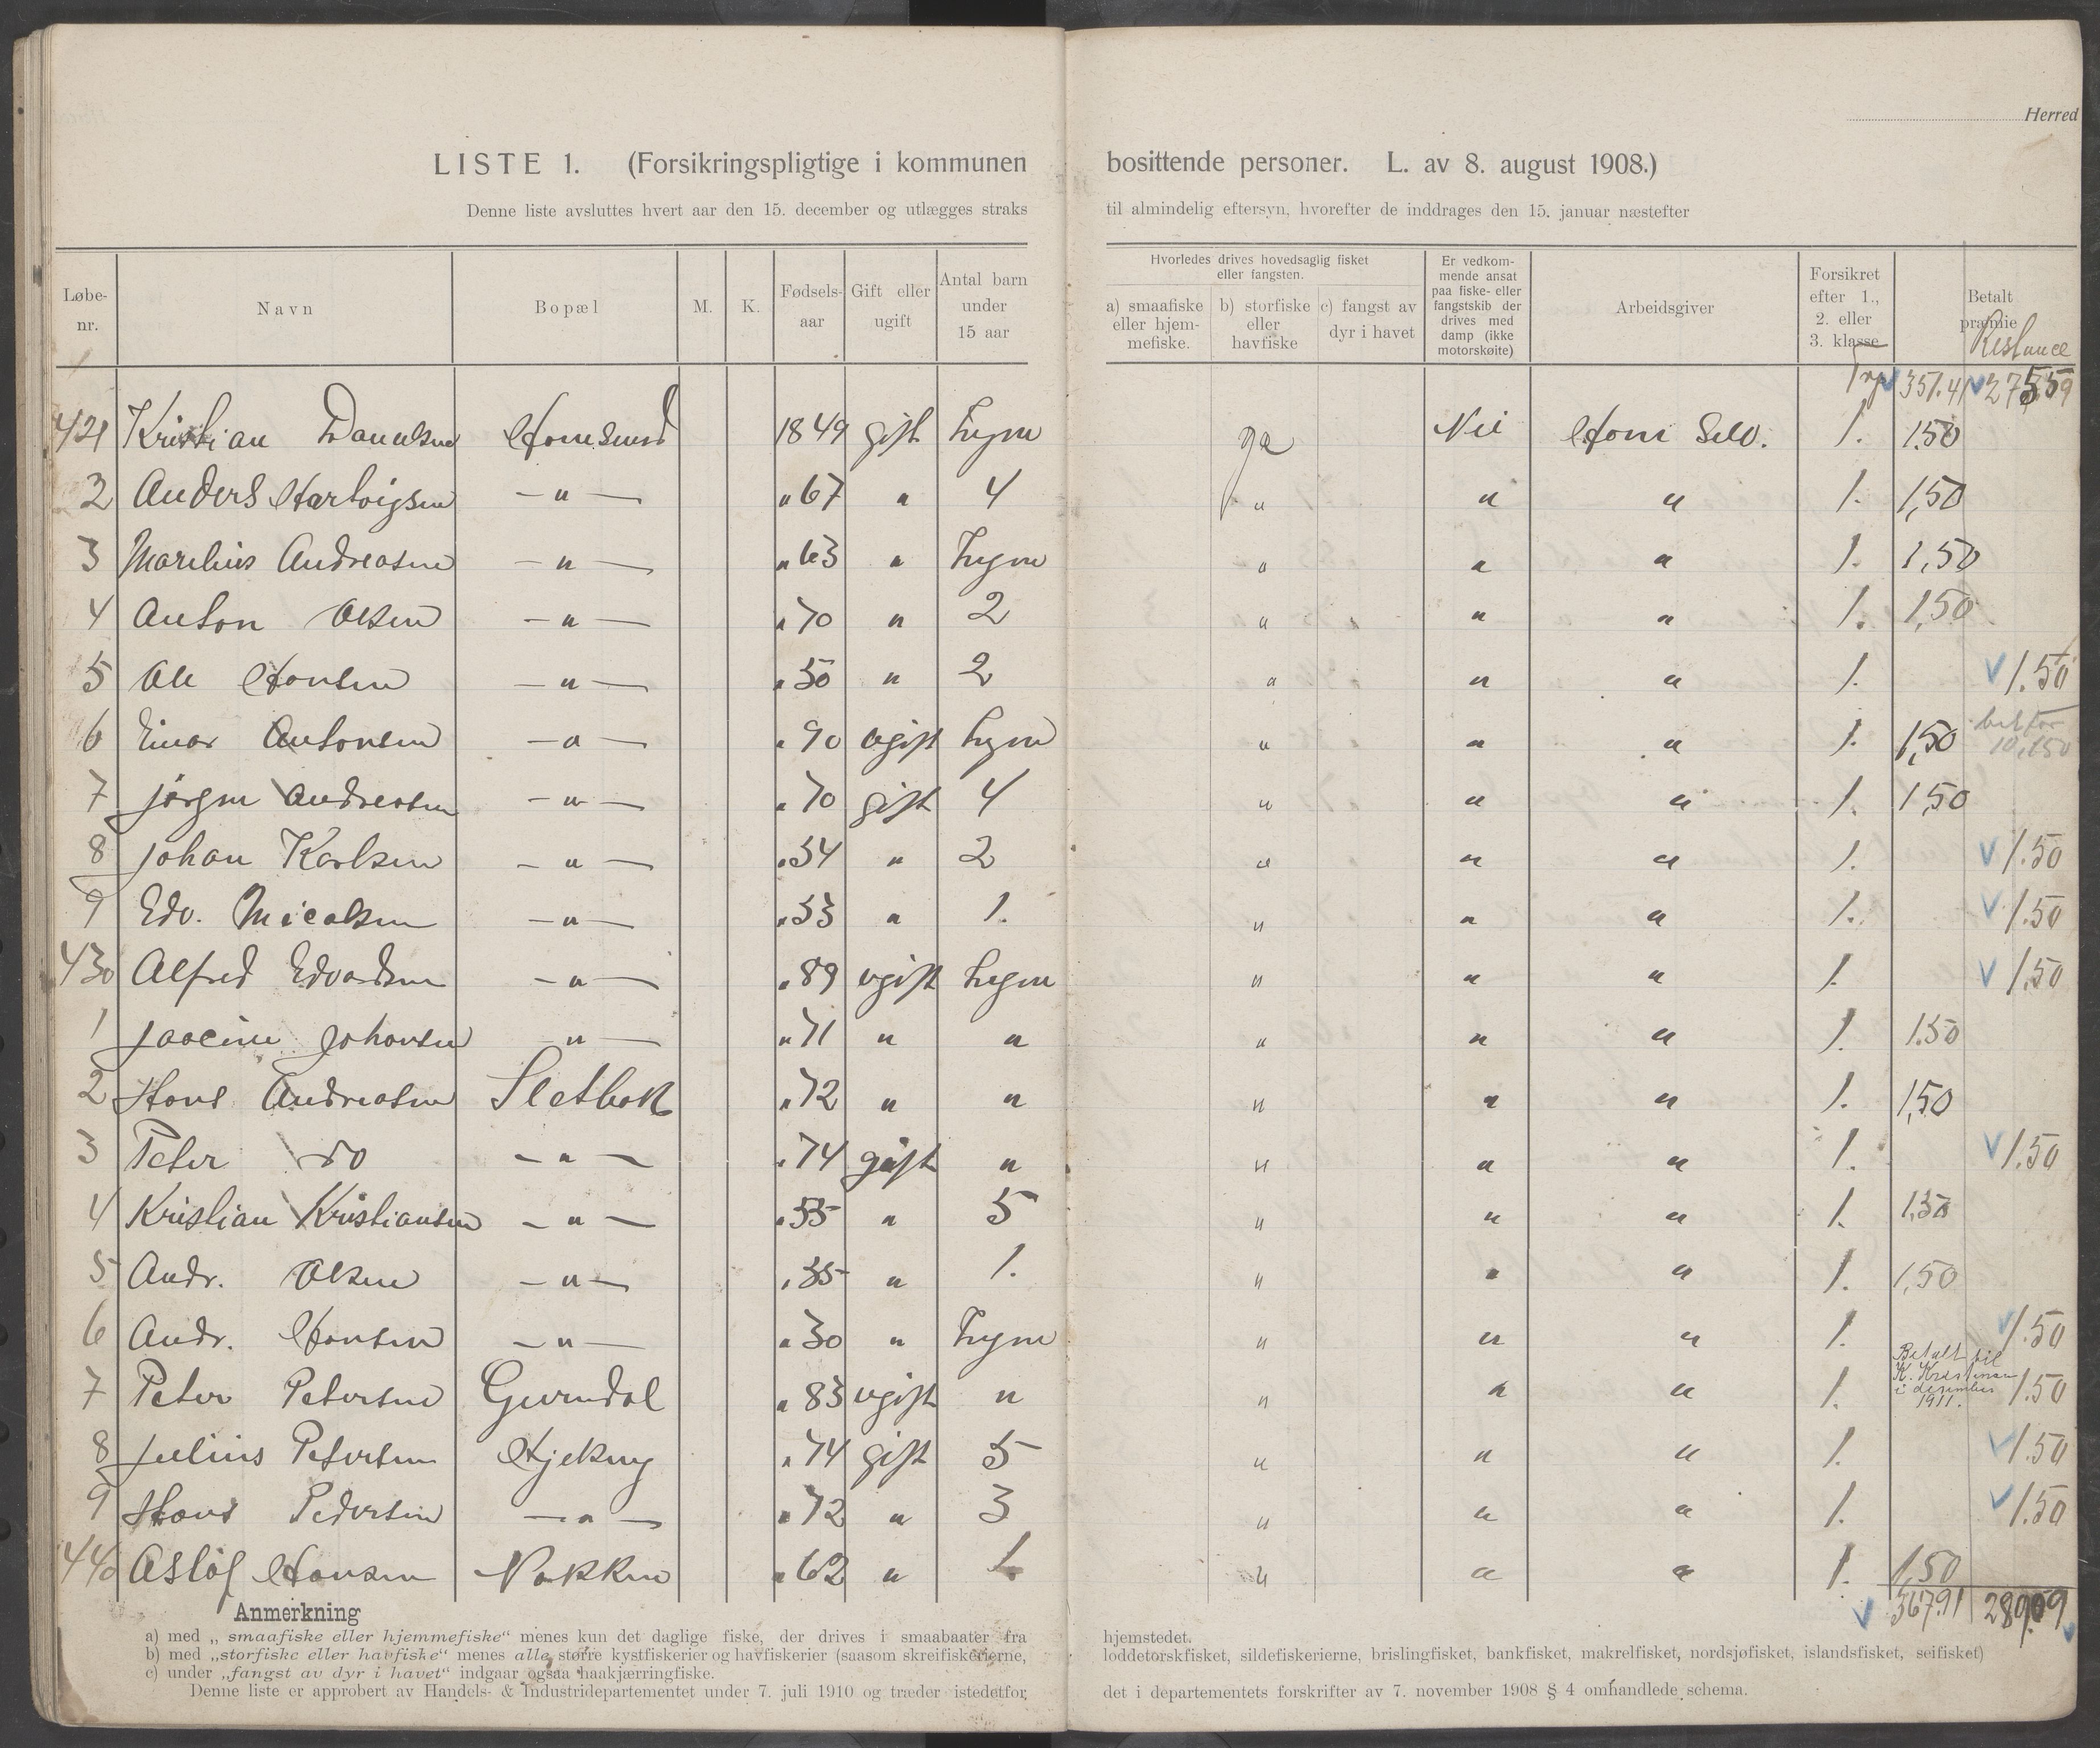 Herred
LISTE 1. (Forsikringspligtige i kommunen bosittende personer. L. av 8. august 1908.)
Denne liste avsluttes hvert aar den 15. december og utlægges straks til almindelig eftersyn, hvorefter de inddrages den 15. januar næstefter
Løbe-nr. Navn Bopæl M. K. Fødsels-aar Gift eller ugift Antal barn under 15 aar Hvorledes drives hovedsaglig fisket eller fangsten. a) smaafiske eller hjem-mefiske. b) storfiske eller havfiske c) fangst av dyr i havet Er vedkom-mende ansat paa fiske- eller fangstskib der drives med damp (ikke motorskøite) Arbeidsgiver Forsikret efter 1., 2. eller 3. klasse Betalt præmie Restance
351.41 275.59
421 Kristian 1849 gift Ingen ja Nei Ham Selv. 1. 1.50
2 Anders Hartvigsen — " — " 67 " 4 " " " 1. 1,50
3 Marelius Andreasen — " — " 63 " Ingen " " " 1. 1,50
4 Anton Olsen — " — " 70 " 2 " " " 1. 1,50
5 Ole Hansen — " — " 50 " 2 " " " 1. 1.50
6 Einar Antonsen — " — " 90 ugift Ingen " " " 1. 1,50
7 Jørgen Andreasen — " — " 70 gift 4 " " " 1. 1,50
8 Johan Karlsen — " — " 54 " 2 " " " 1. 1.50
9 Edv. Micalsen — " — " 53 " 1. " " " 1. 1.50
430 Alfred Edvardsen — " — " 89 ugift Ingen " " " 1. 1.50
1 Johansen — " — " 71 " " " " " 1. 1.50
2 Hans Andreasen Sletbak " 72 " " " " " 1. 1,50
3 Peter do — " — " 74 gift " " " " 1. 1.50
4 Kristian Kristiansen — " — " 55 " 5 " " " 1. 1.50
5 Andr. Olsen — " — " 55 " 1. " " " 1. 1,50
6 Andr. Hansen — " — " 50 " Ingen " " " 1. 1.50
7 Peter Petersen " 83 ugift " " " " 1. Betalt til K. Kristensen i desember 1911. 1.50
8 Julius Petersen " 74 gift 5 " " " 1. 1.50
9 Hans Pedersen — " — " 72 " 3 " " " 1. 1.50
440 Asløf Hansen Nakken " 62 " 1. " " " 1. 1,50
367.91 289.09
Anmerkning
a) med „smaafiske eller hjemmefiske“ menes kun det daglige fiske, der drives i smaabaater fra hjemstedet.
b) med „storfiske eller havfiske“ menes alle større kystfiskerier og havfiskerier (saasom skreifiskerierne, loddetorskfisket, sildefiskerierne, brislingfisket, bankfisket, makrelfisket, nordsjøfisket, islandsfisket, seifisket)
c) under „fangst av dyr i havet“ indgaar ogsaa haakjærringfiske.
Denne liste er approbert av Handels- & Industridepartementet under 7. juli 1910 og træder istedetfor det i departementets forskrifter av 7. november 1908 § 4 omhandlede schema.